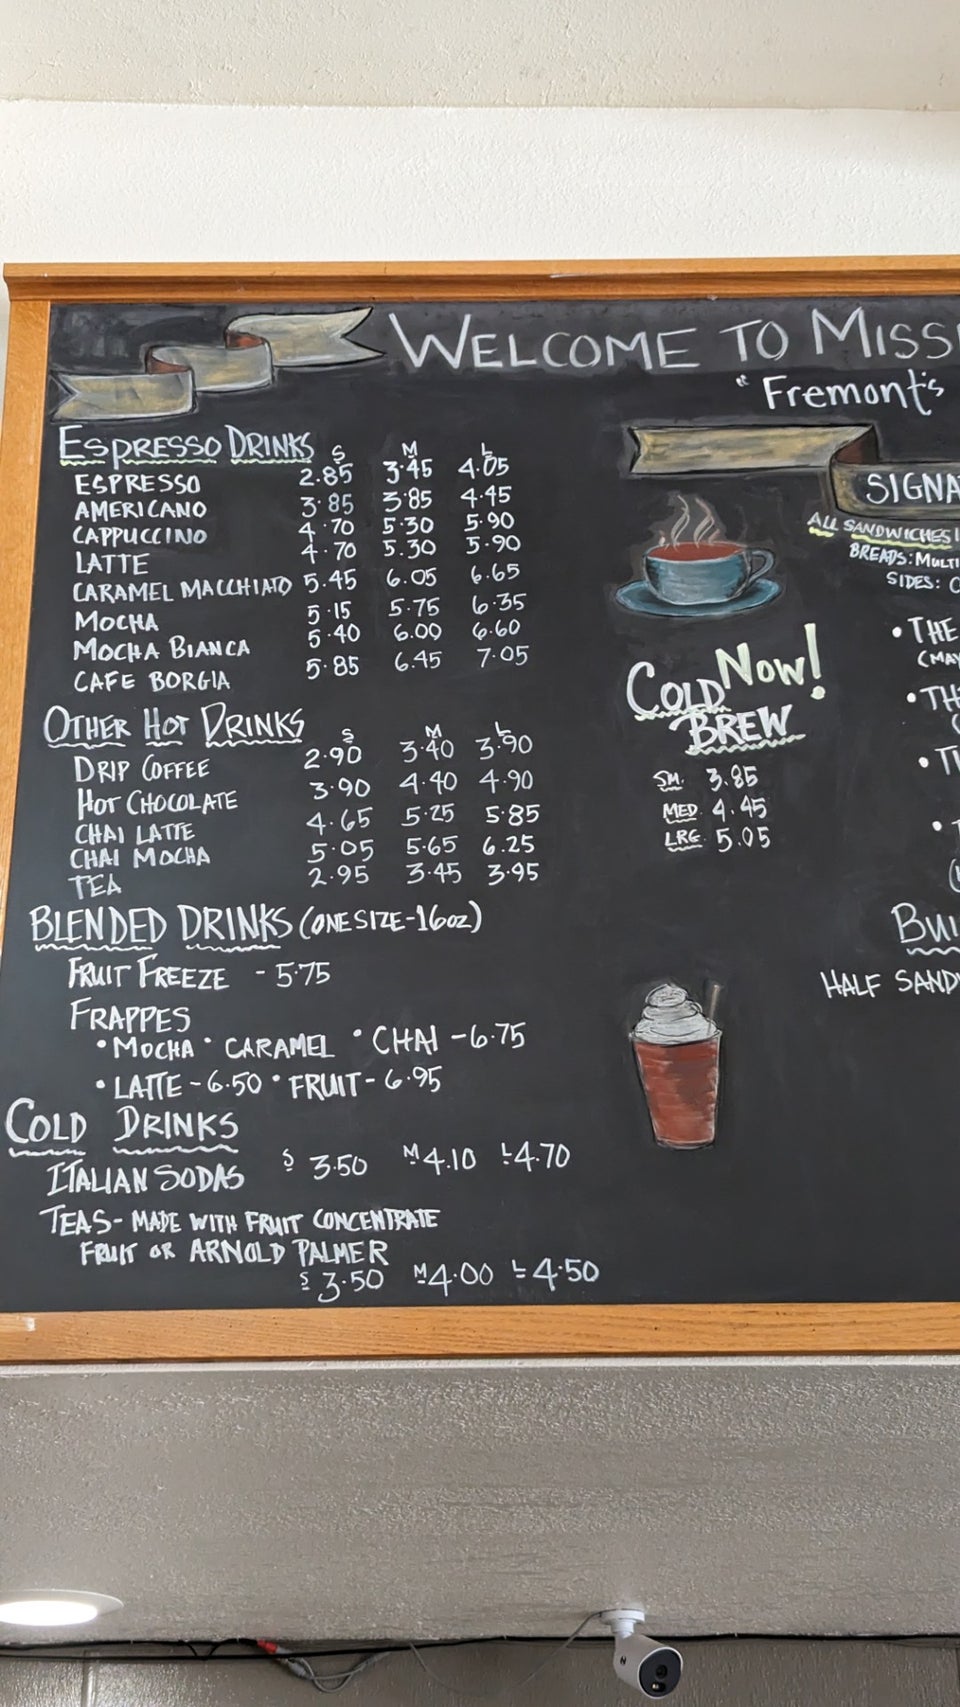 WELCOME TO MISSI
"Fremont's
ESPRESSO DRINKS S M L
ESPRESSO 2.85 3.45 4.05
AMERICANO 3.85 3.85 4.45
CAPPUCCINO 4.70 5.30 5.90
LATTE 4.70 5.30 5.90
CARAMEL MACCHIATO 5.45 6.05 6.65
MOCHA 5.15 5.75 6.35
MOCHA BIANCA 5.40 6.00 6.60
CAFE BORGIA 5.85 6.45 7.05
OTHER HOT DRINKS S M L
DRIP COFFEE 2.90 3.40 3.90
HOT CHOCOLATE 3.90 4.40 4.90
CHAI LATTE 4.65 5.25 5.85
CHAI MOCHA 5.05 5.65 6.25
TEA 2.95 3.45 3.95
BLENDED DRINKS (ONE SIZE-16oz)
FRUIT FREEZE - 5.75
FRAPPES
• MOCHA • CARAMEL • CHAI - 6.75
• LATTE - 6.50 • FRUIT - 6.95
COLD DRINKS
ITALIAN SODAS S 3.50 M 4.10 L 4.70
TEAS - MADE WITH FRUIT CONCENTRATE
FRUIT OR ARNOLD PALMER
S 3.50 M 4.00 L 4.50
NOW!
COLD
BREW
SM. 3.85
MED 4.45
LRG. 5.05
SIGNA
ALL SANDWICHES
BREADS: MULTI
SIDES: C
• THE
(MAY
• TH
• T
BUI
HALF SAND